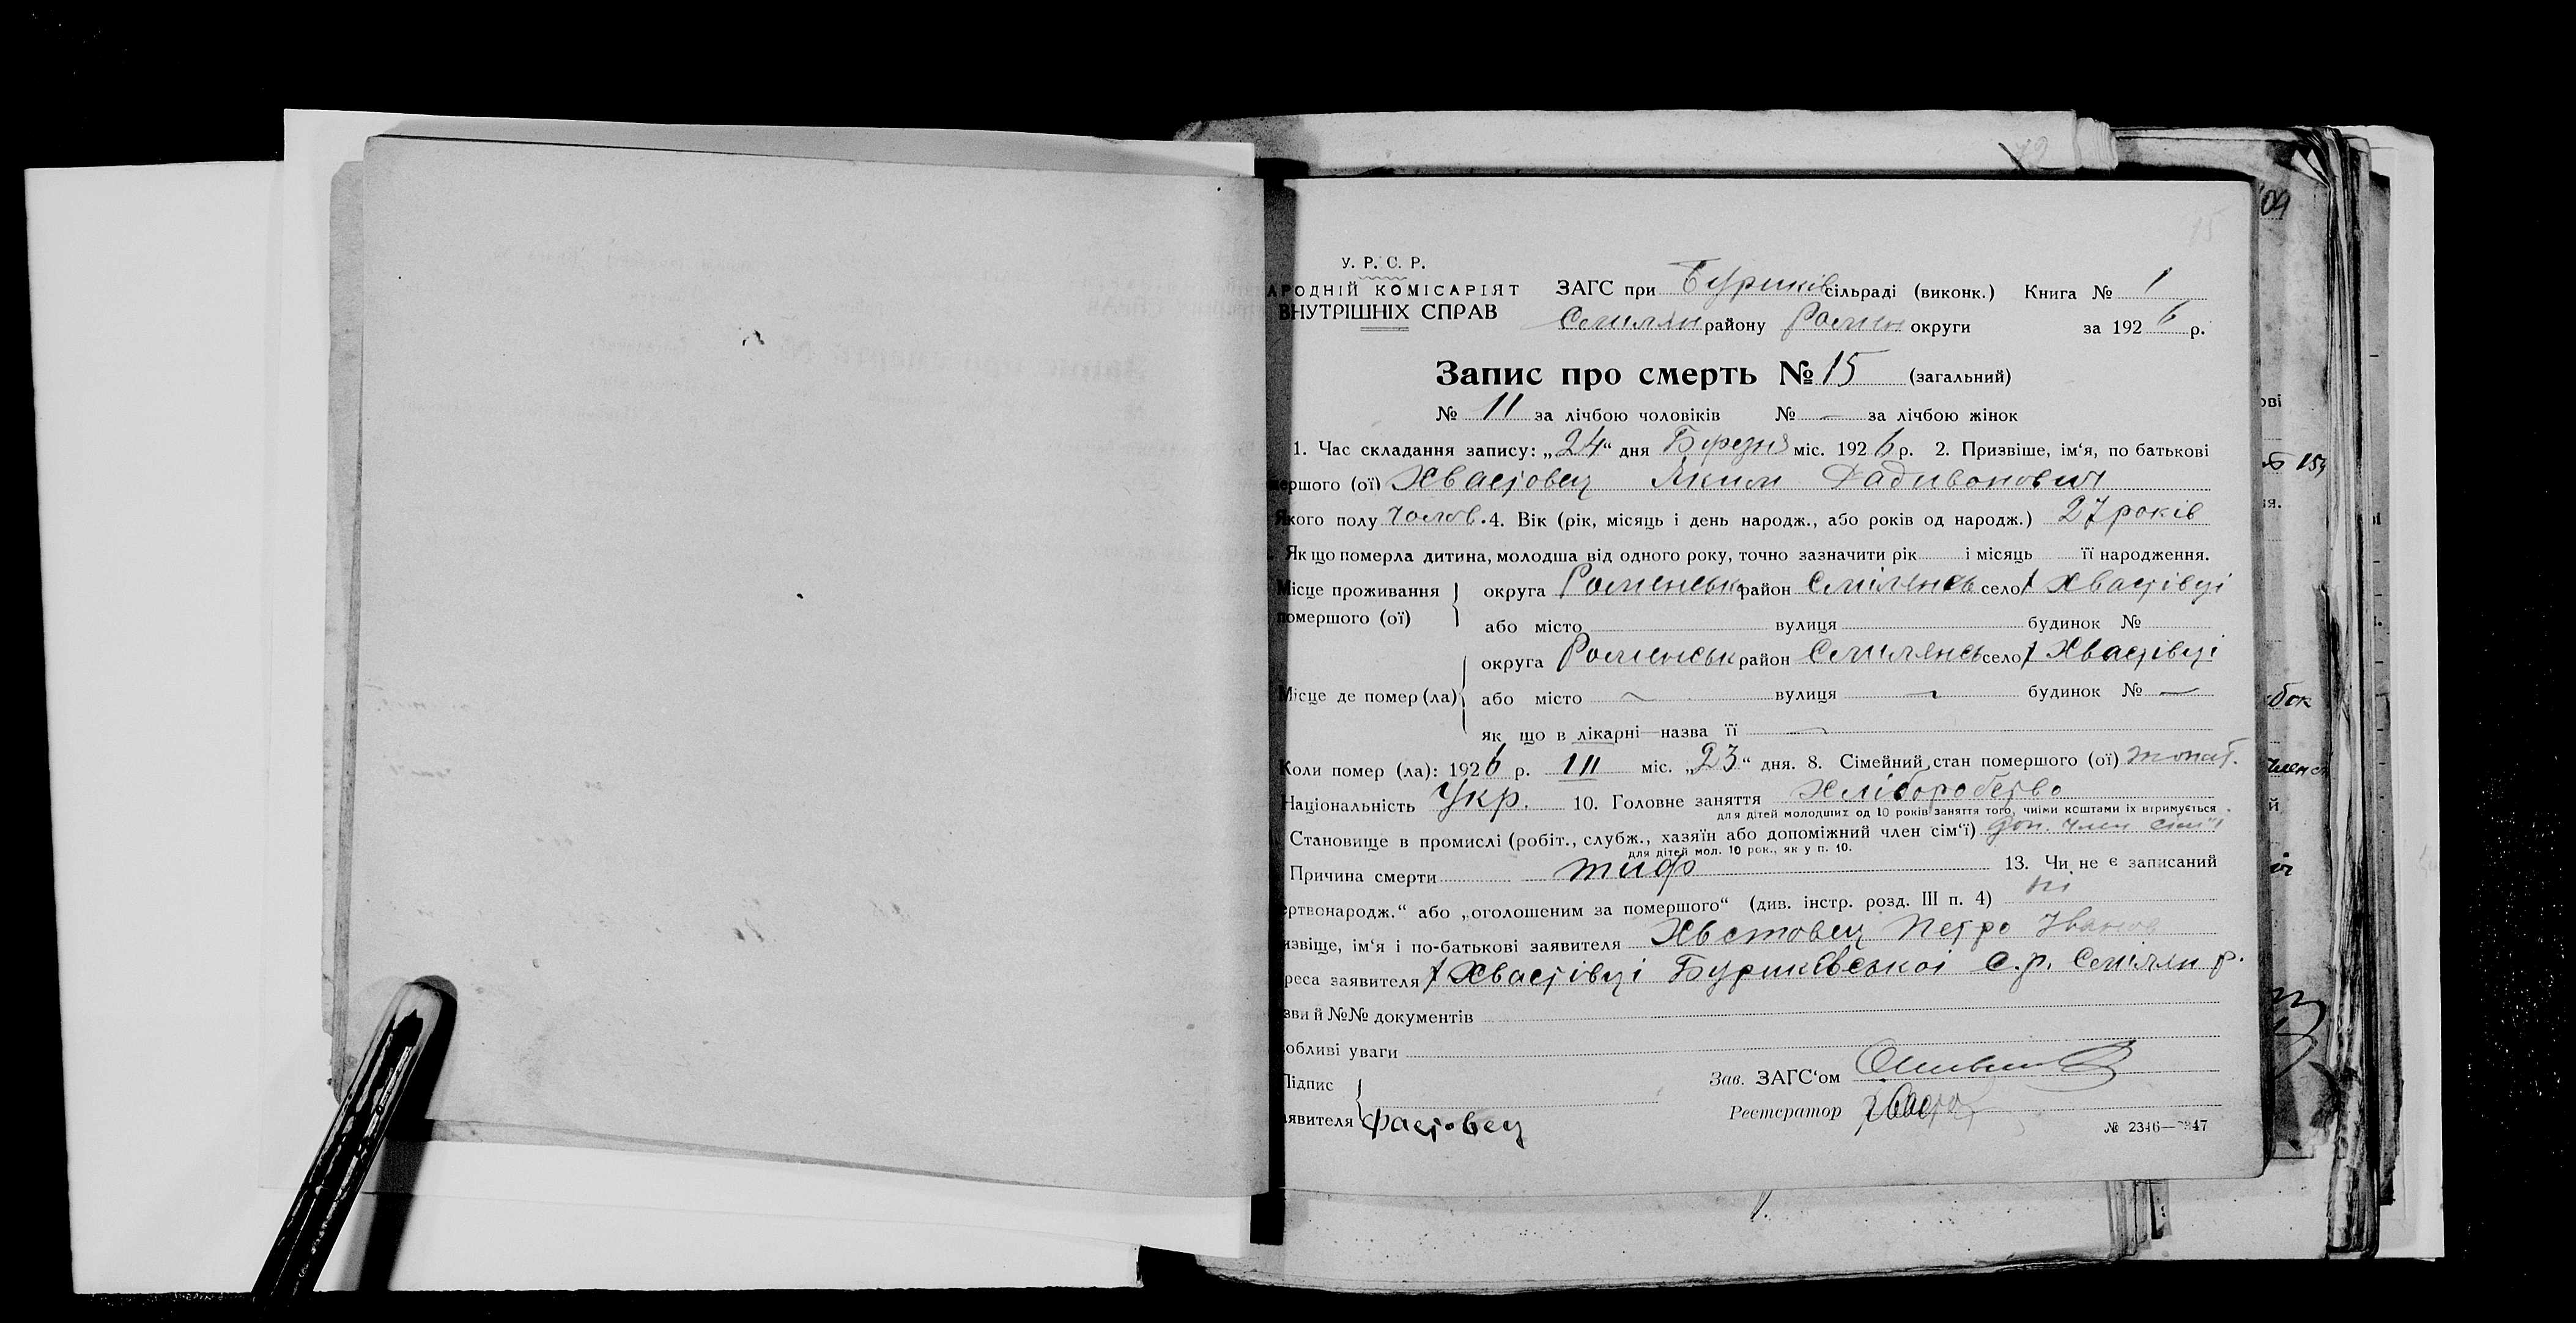 15
У. Р. С. Р.
АРОДНІЙ КОМІСАРІЯТ
ВНУТРІШНІХ СПРАВ
ЗАГС при Буриків сільраді (виконк.) Книга № 1
Смілян району Ромен округи за 1926 р.
Запис про смерть № 15 (загальний)
№ 11 за лічбою чоловіків № — за лічбою жінок
1. Час складання запису: „24“ дня Березня міс. 1926 р. 2. Призвіше, ім‘я, по батькові
мершого (ої) Хвастовец Яким
Якого полу чолов. 4. Вік (рік, місяць і день народж., або років од народж.) 27 років
Як що померла дитина, молодша від одного року, точно зазначити рік і місяць її народження.
Місце проживання помершого (ої) округа Роменськ район Смілянсь село х Хвастівці
або місто вулиця будинок №
Місце де помер (ла) округа Роменськ район Смилянсь село х Хвастівці
або місто — вулиця — будинок № —
як що в лікарні—назва її —
Коли помер (ла): 1926 р. III міс. „23“ дня. 8. Сімейний стан помершого (ої) жонат.
Національність Укр. 10. Головне заняття Хліборобство
для дітей молодших од 10 років заняття того, чиїми коштами їх втримується
Становище в промислі (робіт., служб., хазяїн або допоміжний член сім‘ї) доп. член сім'ї
для дітей мол. 10 рок., як у п. 10.
Причина смерти тиф 13. Чи не є записаний
ертвонародж.“ або „оголошеним за помершого“ (див. інстр. розд. III п. 4) ні
ізвіще, ім‘я і по-батькові заявителя Хвстовец Петро Іванов
реса заявителя х Хвастівці Буриківської С.р. Смілян р.
зви й №№ документів
обливі уваги
Підпис
аявителя Фастовец
Зав. ЗАГС‘ом
Реєстратор
№ 2346—2347